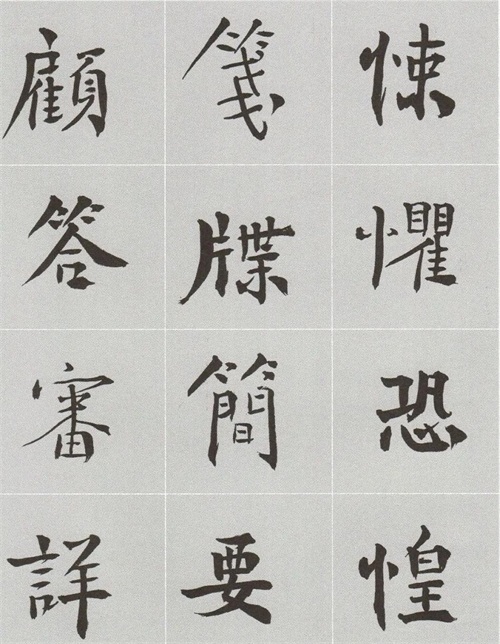 悚懼恐惶
箋牒簡要
顧答審詳